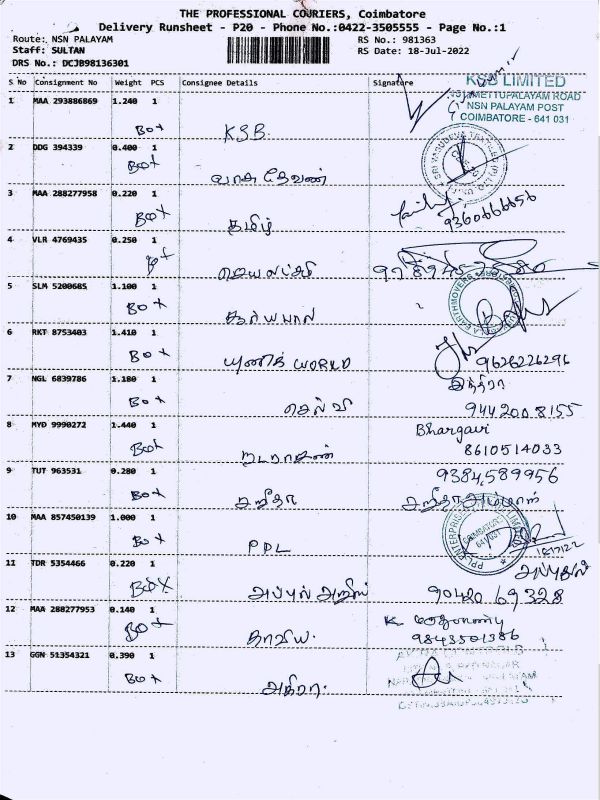 THE PROFESSIONAL COURIERS, Coimbatore
Delivery Runsheet - P20 - Phone No.:0422-3505555 - Page No.:1
Route: NSN PALAYAM
RS No.: 981363
Staff: SULTAN
RS Date: 18-Jul-2022
DRS No.: DCJB98136301
S No Consignment No Weight PCS Consignee Details Signature
KSB LIMITED
METTUPALAYAM ROAD
NSN PALAYAM POST
COIMBATORE - 641 031
1 MAA 293886869 1.240 1
Box KSB.
2 DDG 394339 0.400 1
Box வாசு தேவன்
3 MAA 288277958 0.220 1
Box தமிழ் 9360666656
4 VLR 4769435 0.250 1
ஜெயலட்சுமி
5 SLM 5200685 1.100 1
Box சூர்யபால்
6 RKT 8753403 1.410 1
Box யுனிக் WORLD 9626226296
7 NGL 6839786 1.180 1
இந்திரா
Box செல்வி 944200.8155
8 MYD 9990272 1.440 1
Bhargavi
Box நடராஜன் 8610514033
9 TUT 963531 0.280 1
9384,589956
Box சுஜிதா
10 MAA 857450139 1.000 1
Box PDL
PPL ENTERPRISES LIMITED
COIMBATORE
641 031
18/7/22
11 TDR 5354466 0.220 1
Box அப்துல் அஜிஸ் 90420 69328
12 MAA 288277953 0.140 1
Box காவியா. 9843501386
13 GGN 51354321 0.390 1
Box அதிரா.